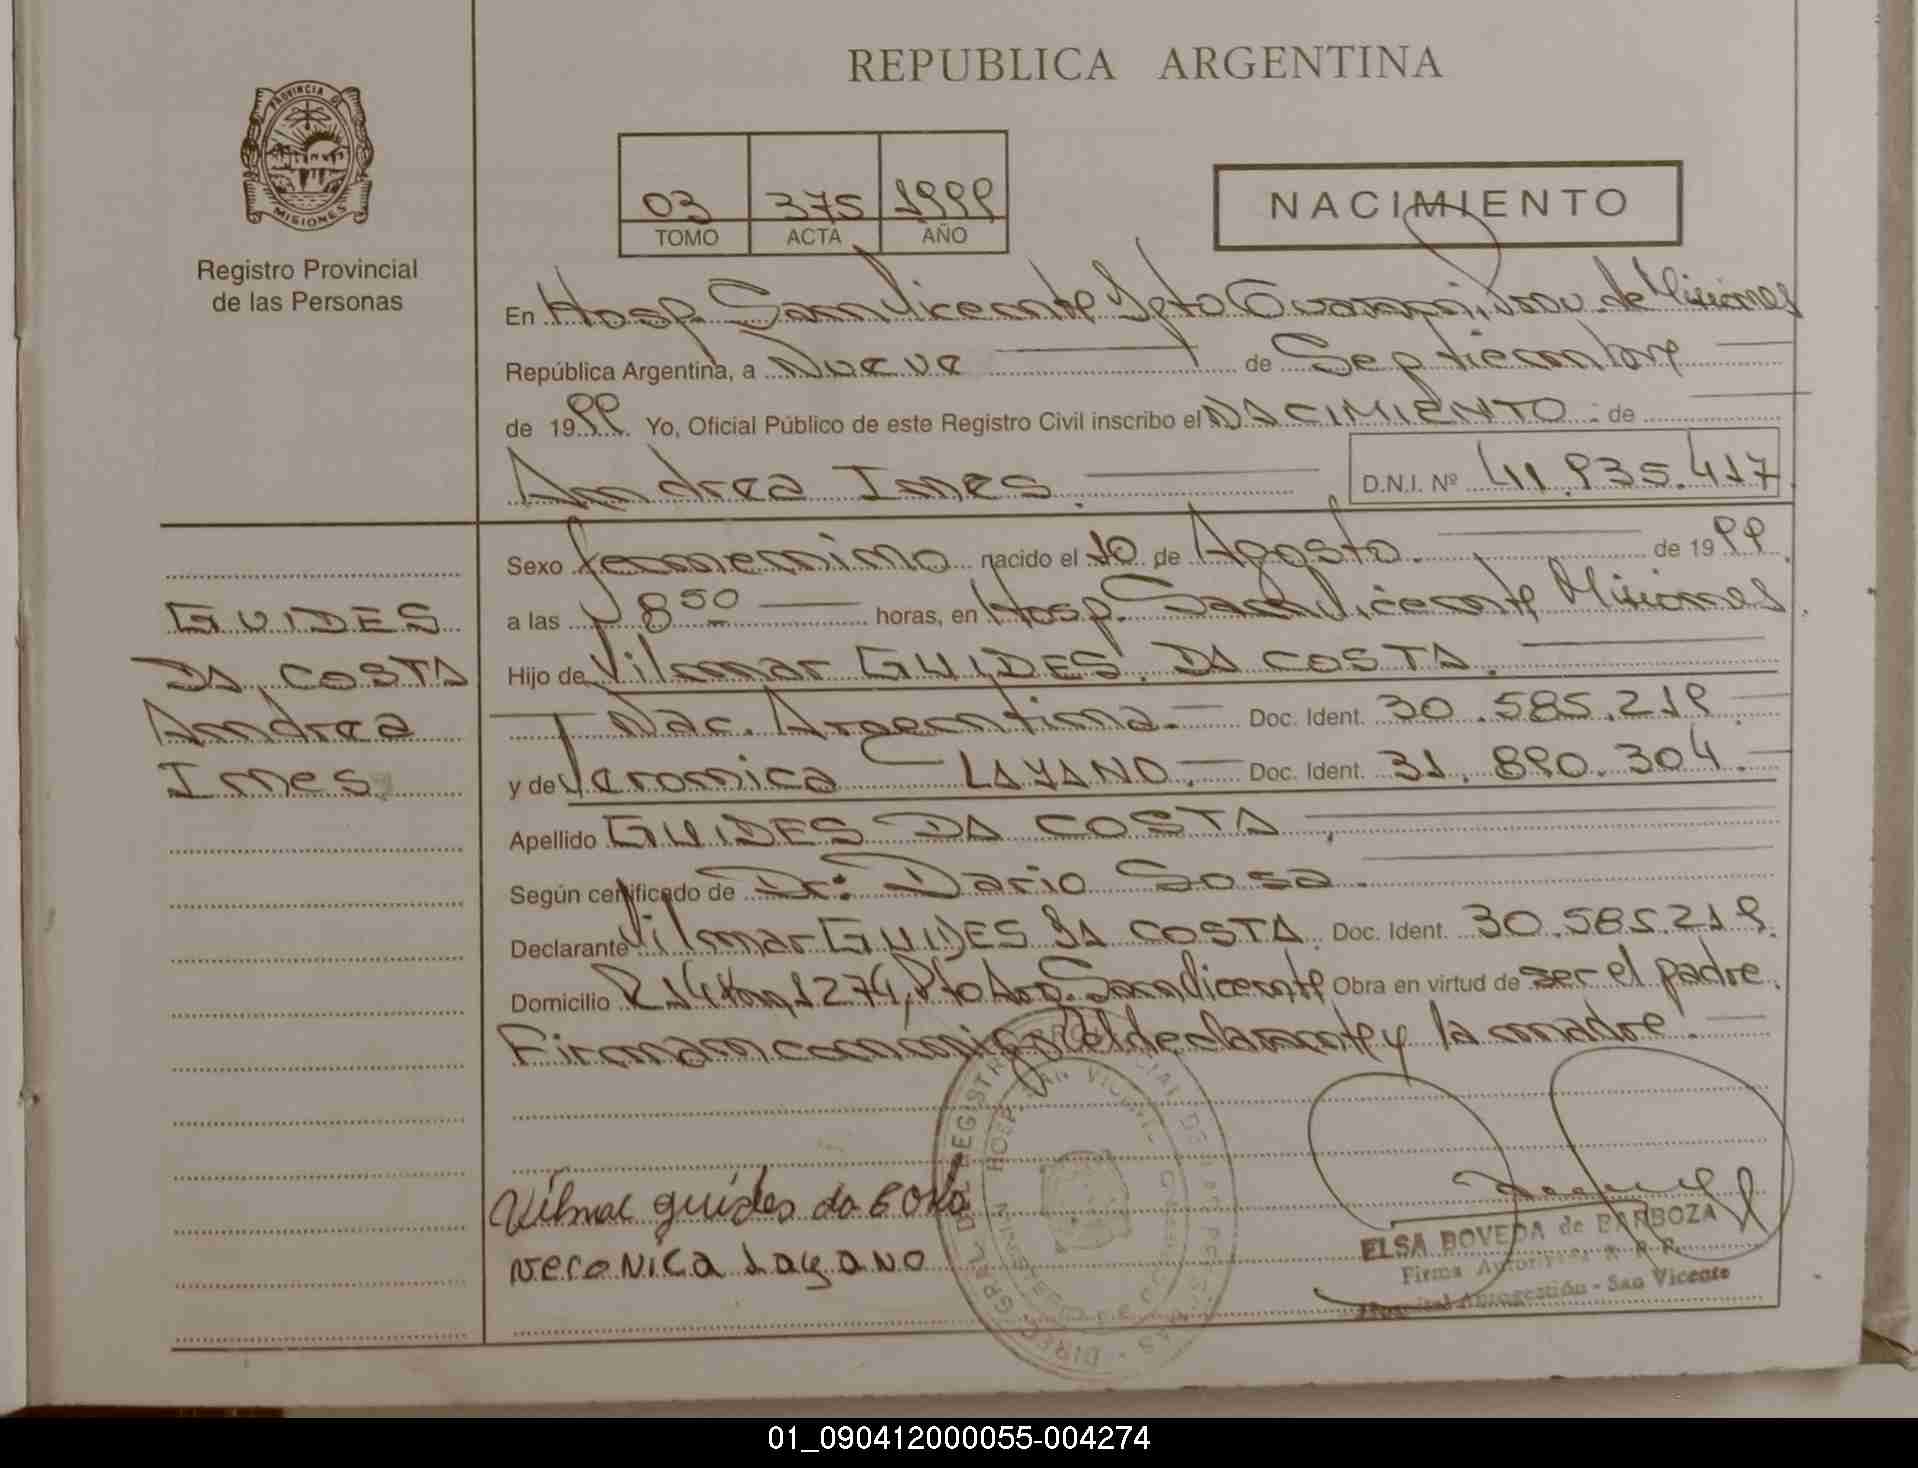 REPUBLICA ARGENTINA
PROVINCIA DE
MISIONES
Registro Provincial
de las Personas
03 375 1999
TOMO ACTA AÑO
NACIMIENTO
En Hosp. San Vicente Dpto Guarani, Prov. de Misiones
República Argentina, a Nueve de Septiembre
de 1999 Yo, Oficial Público de este Registro Civil inscribo el NACIMIENTO de
Andrea Ines. D.N.I. Nº 41.935.417
Sexo femenino nacido el 10 de Agosto. de 1999
a las 8 50 horas, en Hosp. San Vicente Misiones.
Hijo de Vilmar GUIDES DA COSTA.
Nac. Argentina. Doc. Ident. 30.585.219.
y de Veronica LAYANO. Doc. Ident. 31.890.304.
Apellido GUIDES DA COSTA.
Según certificado de Dr: Dario Sosa.
Declarante Vilmar GUIDES DA COSTA. Doc. Ident. 30.585.219.
Domicilio R 14 Km 1274, Pto Arg. San Vicente Obra en virtud de ser el padre.
Firman conmigo el declarante y la madre.
GUIDES
DA COSTA
Andrea
Ines
Vilmar guides da Costa
veronica Layano
DIREC. GRAL. DEL REGISTRO PROVINCIAL DE LAS PERSONAS
HOSP. SAN VICENTE
ELSA BOVEDA de BARBOZA
Firma Autorizada R. P. P.
Hospital Autogestión - San Vicente
01_090412000055-004274